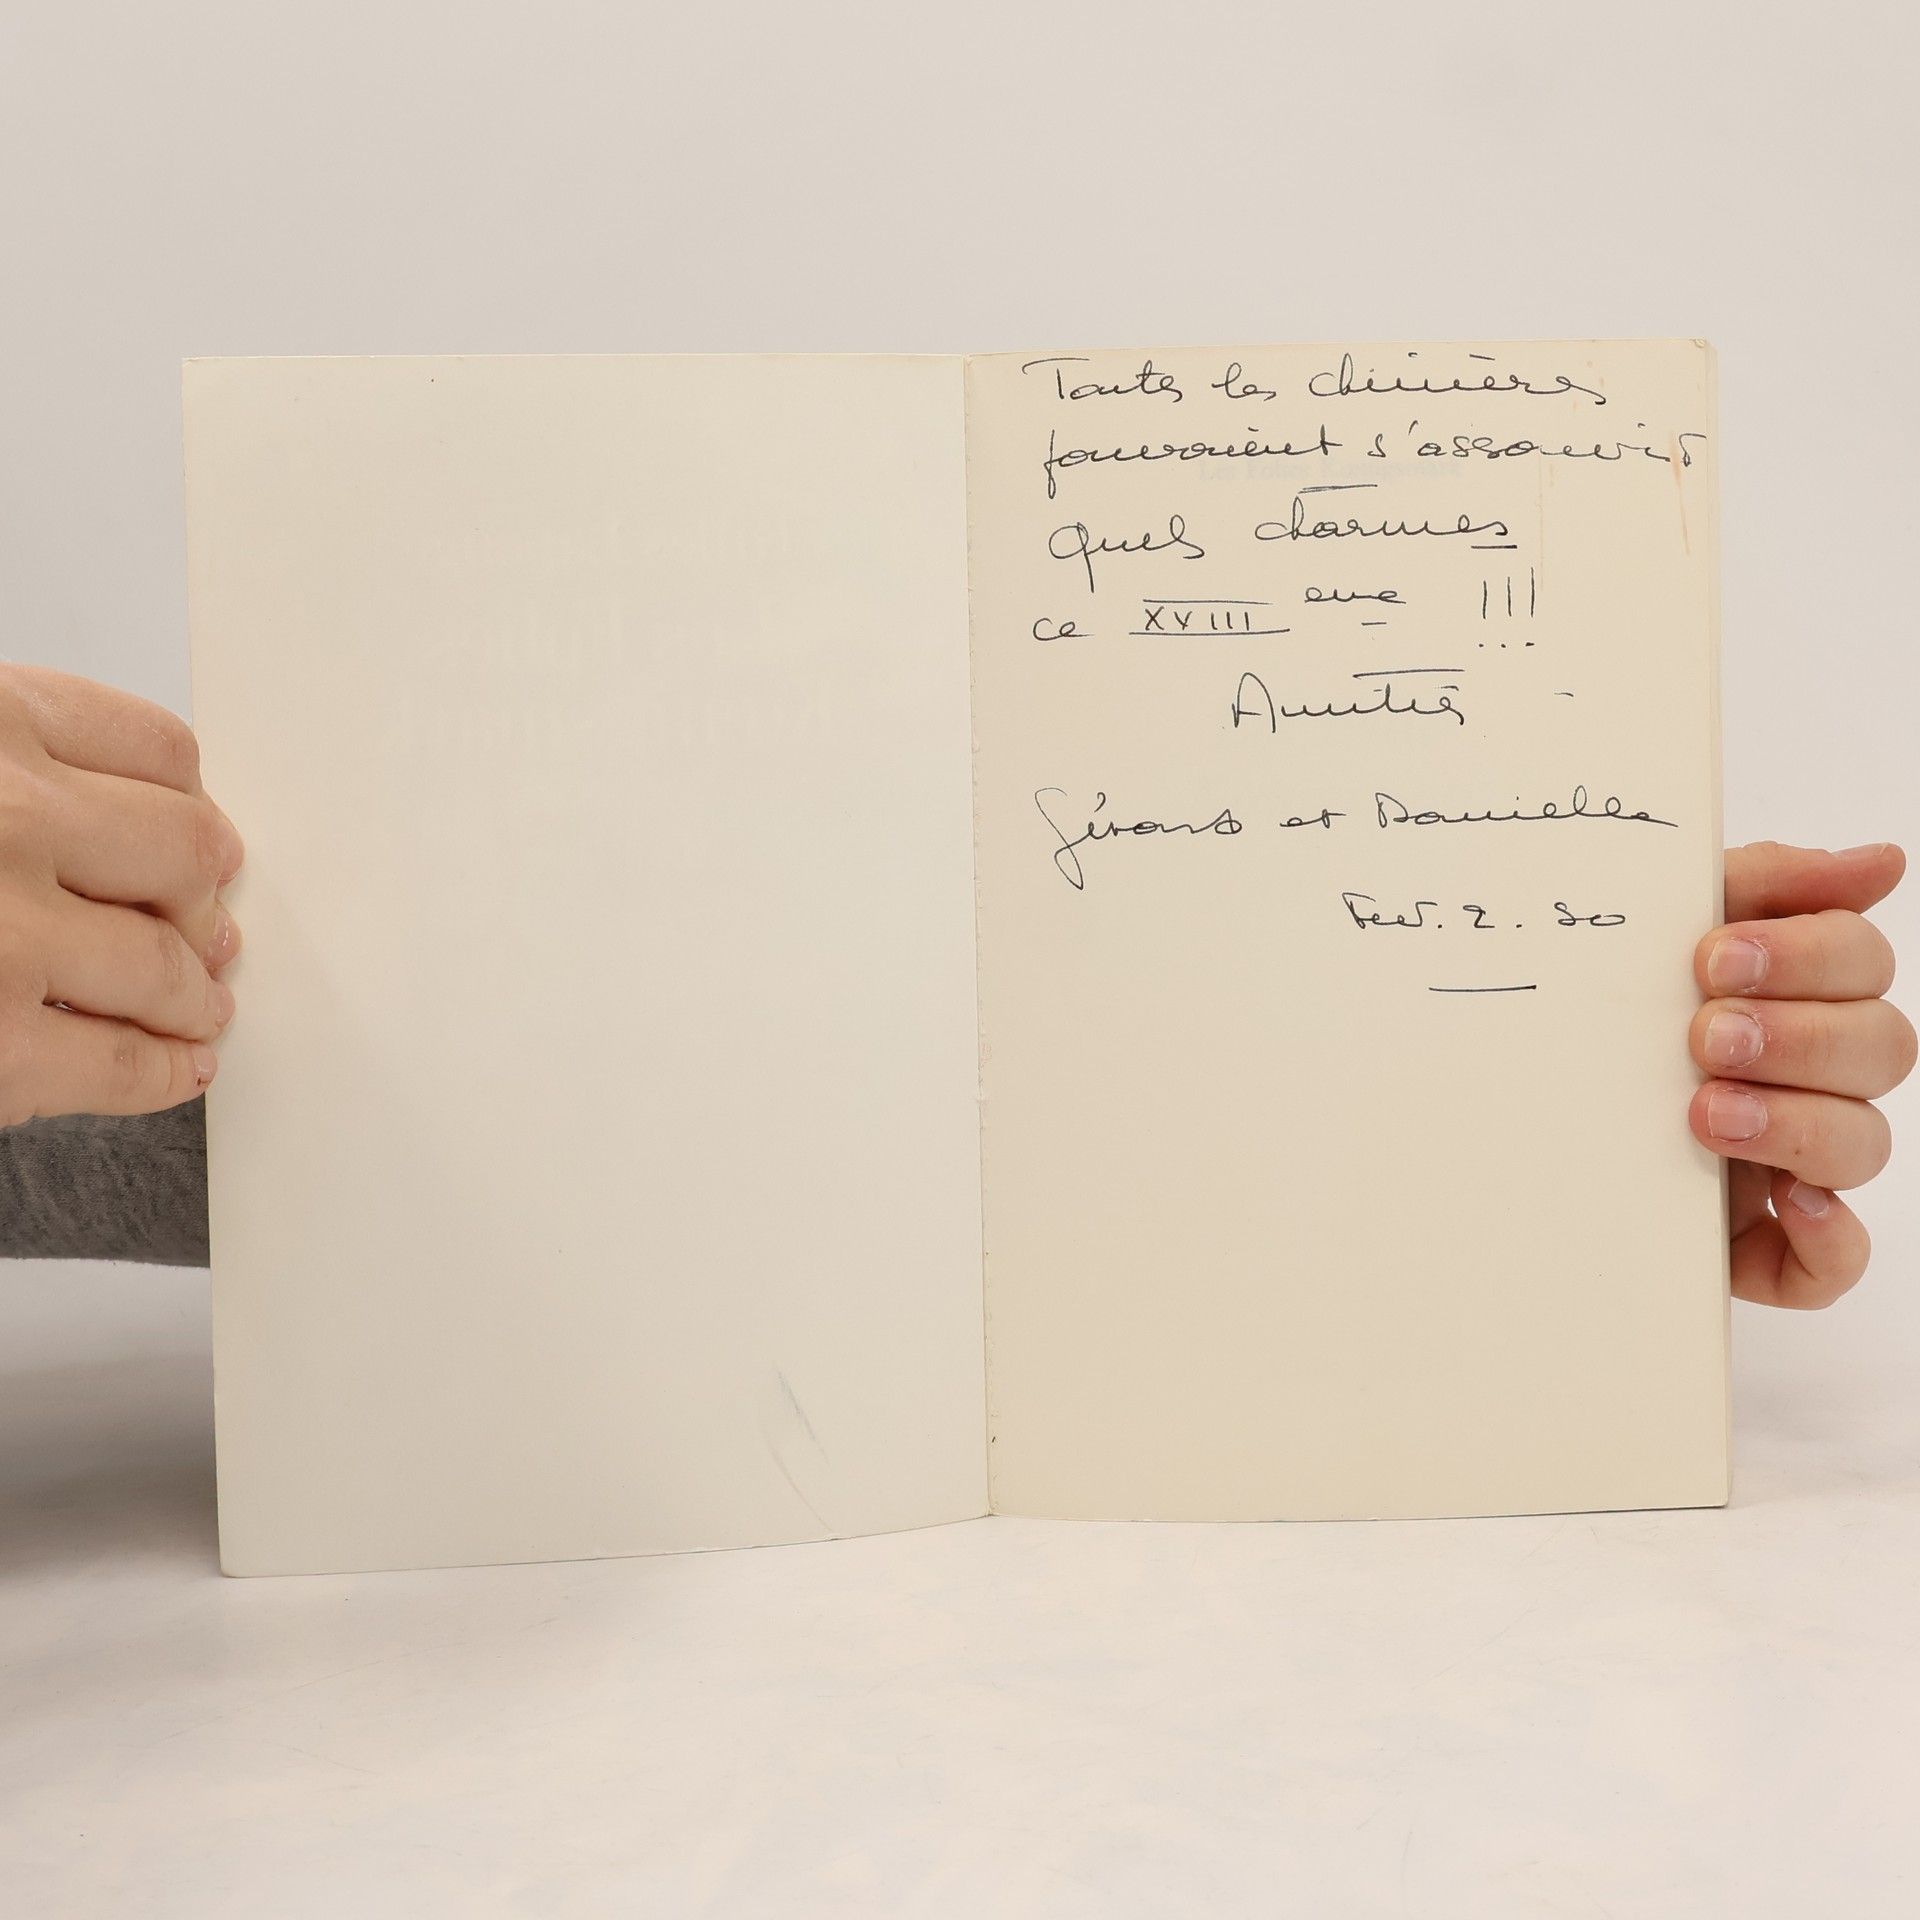 Toutes les chimères
pouvaient s'assouvir
Quels charmes
ce XVIIIeme !!!
Amitiés -
Gérard et Danielle
Fev. 2. 80